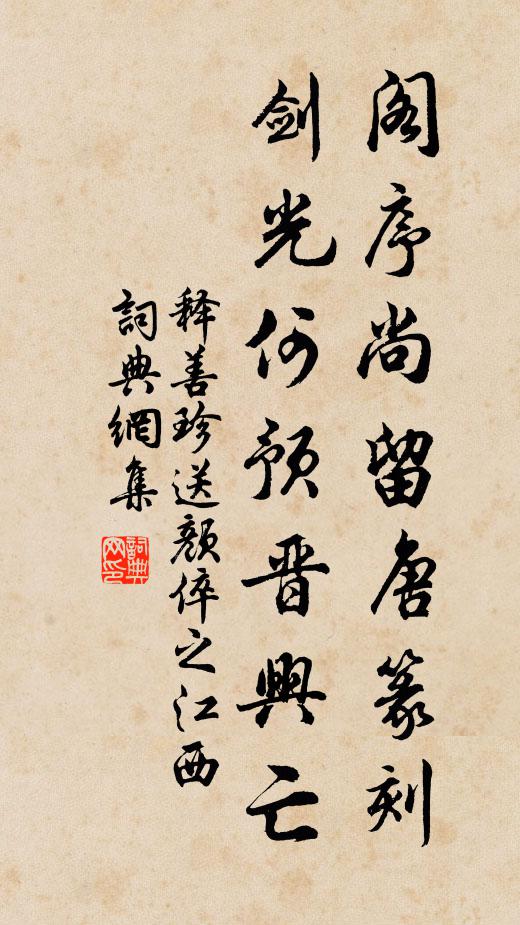 阁序尚留唐篆刻
剑光何预晋興亡
释善珍送颜倅之江西
詞典網集
詞典网印